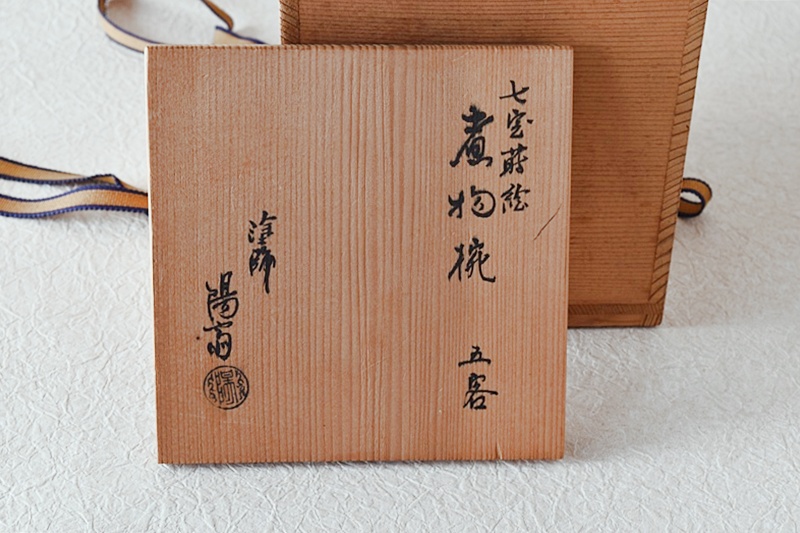 七宝蒔絵
煮物椀 五客
塗師
陽斎